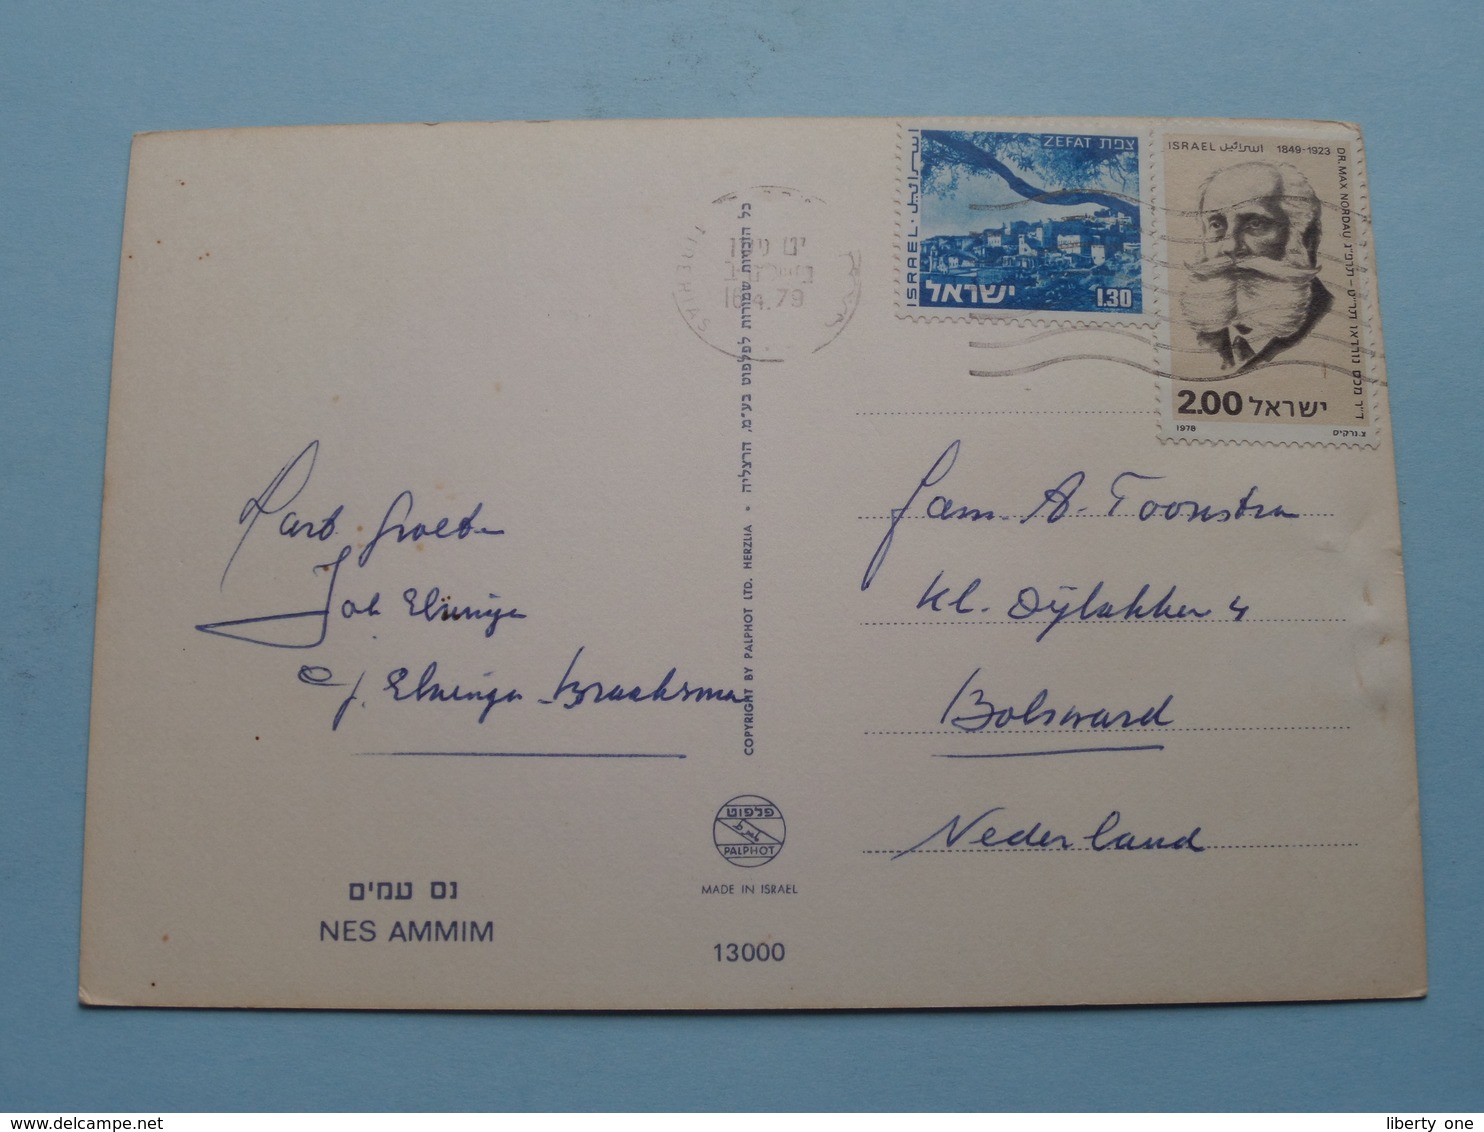 ZEFAT צפת
اسرائيل
ISRAEL
ישראל 1.30
ISRAEL اسرائيل 1849-1923
DR. MAX NORDAU
ד"ר מכס נורדאו תר"ט - תרפ"ג
2.00 ישראל
1978 צ. נרקיס
TIBERIAS
יט ניסן
16.4.79
כל הזכויות שמורות לפלפוט בע"מ, הרצליה • COPYRIGHT BY PALPHOT LTD. HERZLIA
Hart. Groeten
Joh Elzinga
e/ J. Elzinga-Braaksma
Fam. A. Toornstra
Kl. Dijlakker 4
Bolsward
Nederland
פלפוט
PALPHOT
MADE IN ISRAEL
13000
נס עמים
NES AMMIM
delcampe.net
liberty one